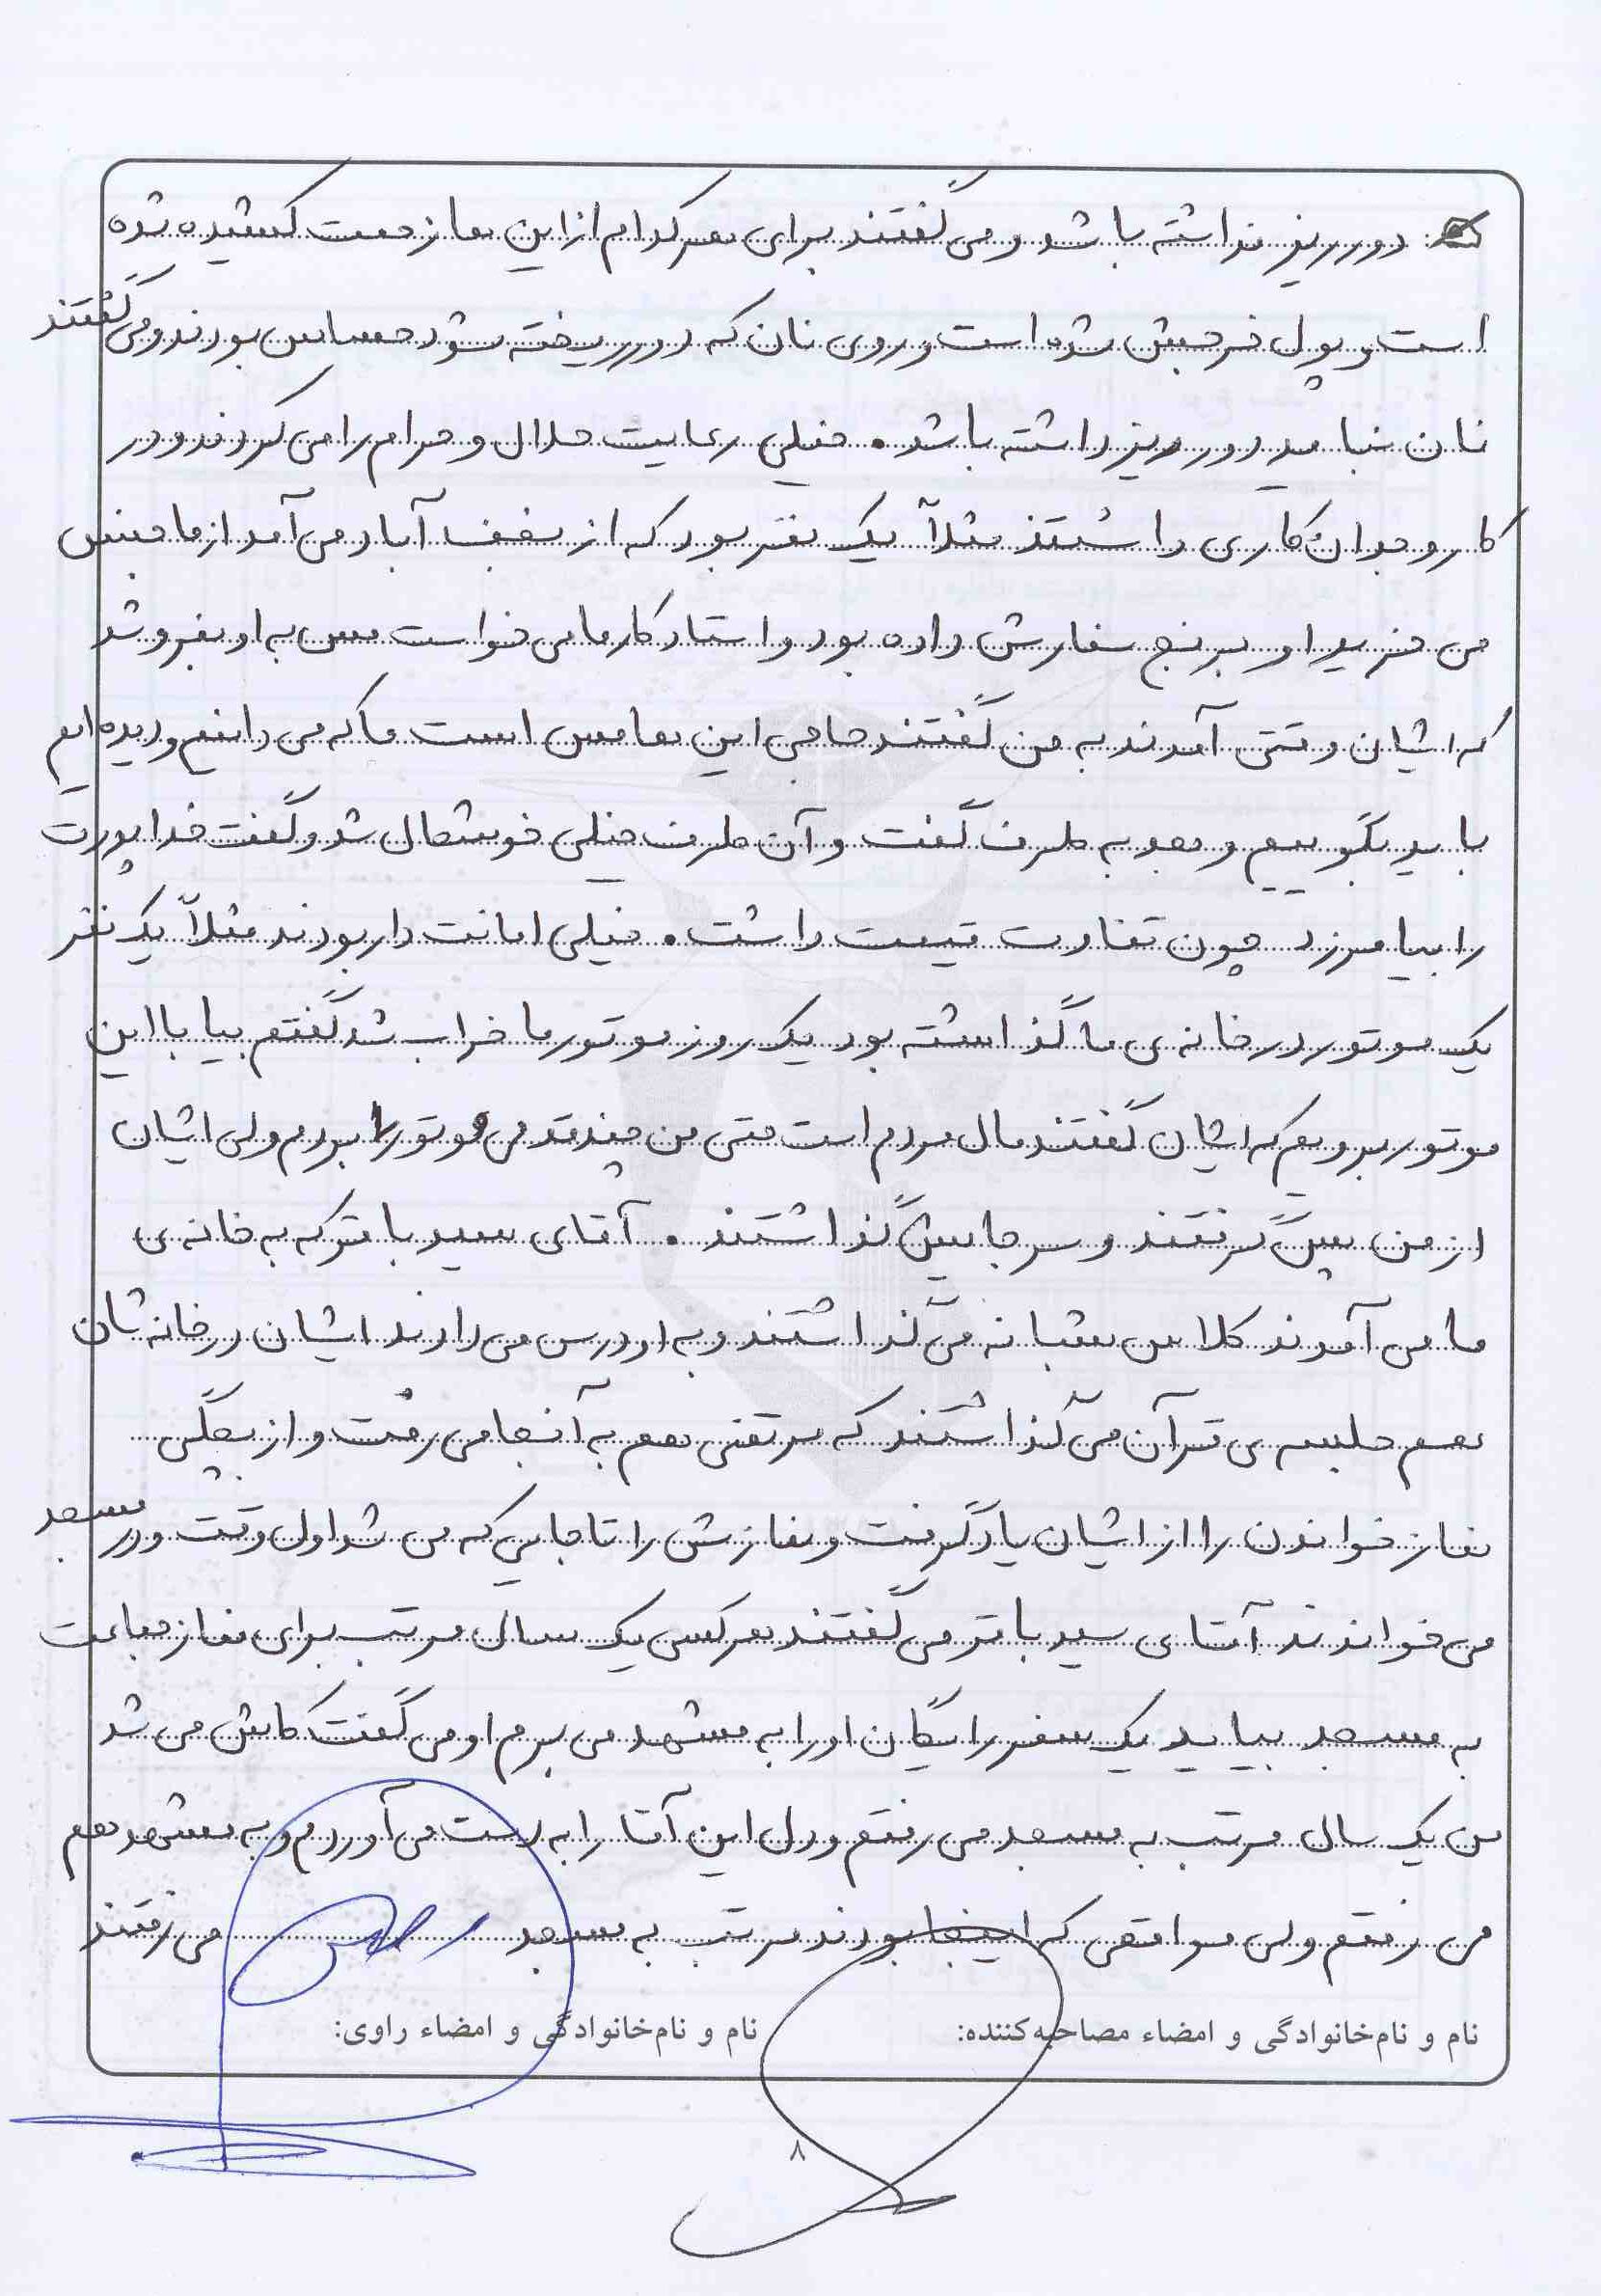 دورریز نداشته باشد و می گفتند برای هر کدام از این ها زحمت کشیده شده
است و پول خرجش شده است و روی نان که دور ریخته شود حساس بودند و می گفتند
نان نباید دورریز داشته باشد. خیلی رعایت حلال و حرام را می کردند و در
کار وجدان کاری داشتند مثلاً یک نفر بود که از نجف آباد می آمد از ما جنس
می خرید او برنج سفارش داده بود و استاد کار ما می خواست مس به او بفروشد
که ایشان وقتی آمدند به من گفتند حاجی این ها مس است ما که می دانیم و دیده ایم
باید بگوییم و بعد به طرف گفت و آن طرف خیلی خوشحال شد و گفت خدا پدرت
را بیامرزد چون تفاوت قیمت داشت. خیلی امانت دار بودند مثلاً یک نفر
یک موتور در خانه ی ما گذاشته بود یک روز موتور ما خراب شد گفتم بیا با این
موتور برویم که ایشان گفتند مال مردم است حتی من چند قدمی موتور را بردم ولی ایشان
از من پس گرفتند و سر جایش گذاشتند. آقای سید باقر که به خانه ی
ما می آمدند کلاس شبانه می گذاشتند و به او درس می دادند ایشان در خانه شان
هم جلسه ی قرآن می گذاشتند که مرتضی هم به آنجا می رفت و از بچگی
نماز خواندن را از ایشان یاد گرفت و نمازش را تا جایی که می شد اول وقت و در مسجد
می خواندند آقای سید باقر می گفتند هر کسی یک سال مرتب برای نماز جماعت
به مسجد بیاید یک سفر رایگان او را به مشهد می برم او می گفت کاش می شد
من یک سال مرتب به مسجد می رفتم و دل این آقا را به دست می آوردم و به مشهد هم
می رفتم ولی مواقعی که اینجا بودند مرتب به مسجد می رفتند
نام و نام‌خانوادگی و امضاء مصاحبه‌کننده: نام و نام‌خانوادگی و امضاء راوی:
۸